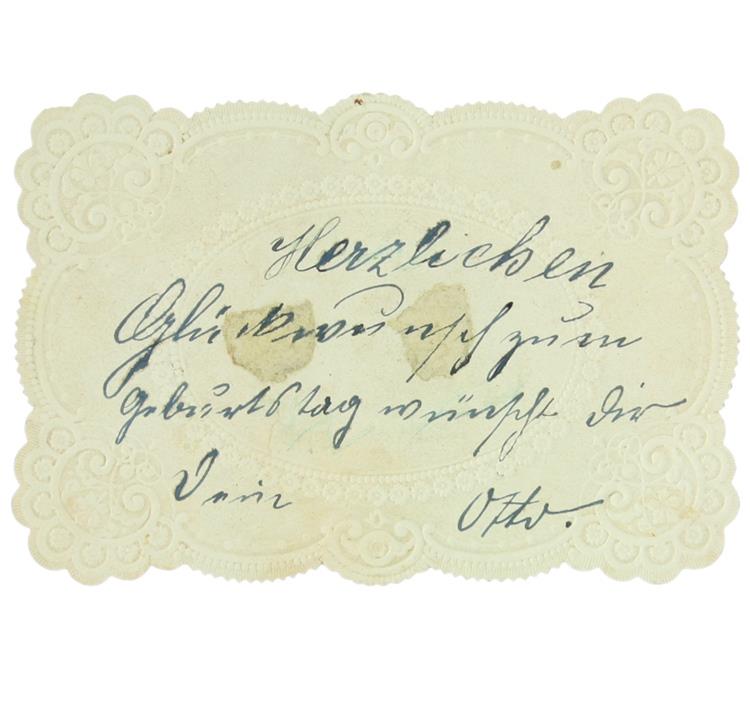 Herzlichen
Glückwunsch zum
Geburtstag wünscht Dir
Dein Otto.